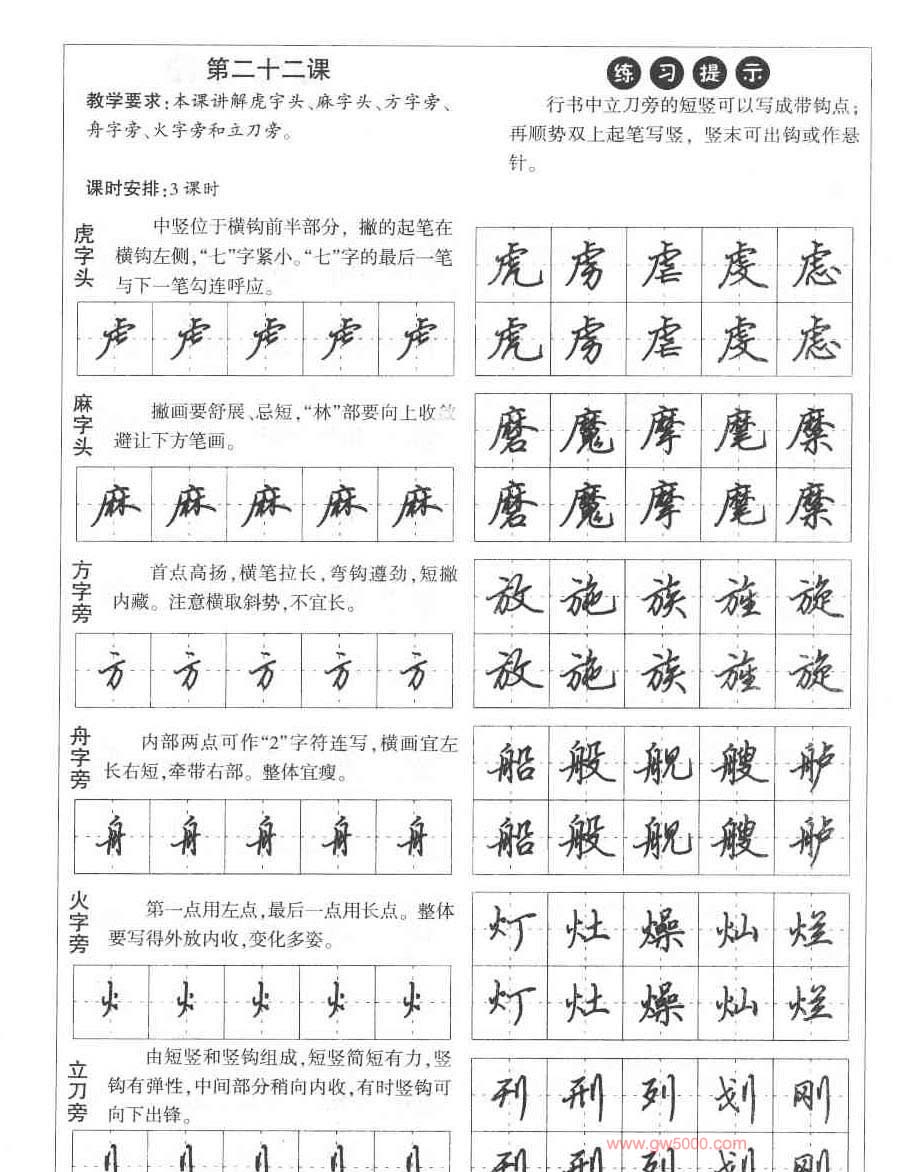 第二十二课
教学要求:本课讲解虎字头、麻字头、方字旁、
舟字旁、火字旁和立刀旁。
课时安排:3课时
练习提示
行书中立刀旁的短竖可以写成带钩点;
再顺势双上起笔写竖，竖末可出钩或作悬
针。
虎字头
中竖位于横钩前半部分，撇的起笔在
横钩左侧,“七”字紧小。“七”字的最后一笔
与下一笔勾连呼应。
虎 虏 虐 虔 虑
虎 虏 虐 虔 虑
麻字头
撇画要舒展、忌短,“林”部要向上收
避让下方笔画。
麻 麻 麻 麻 麻
磨 魔 摩 麾 糜
磨 魔 摩 麾 糜
方字旁
首点高扬,横笔拉长,弯钩遵劲,短撇
内藏。注意横取斜势,不宜长。
方 方 方 方 方
放 施 族 旌 旋
放 施 族 旌 旋
舟字旁
内部两点可作“2”字符连写,横画宜左
长右短,牵带右部。整体宜瘦。
舟 舟 舟 舟 舟
船 般 舰 艘 舻
船 般 舰 艘 舻
火字旁
第一点用左点,最后一点用长点。整体
要写得外放内收,变化多姿。
火 火 火 火 火
灯 灶 燥 灿 烂
灯 灶 燥 灿 烂
立刀旁
由短竖和竖钩组成,短竖简短有力,竖
钩有弹性,中间部分稍向内收,有时竖钩可
向下出锋。
刊 刑 列 划 刚
www.gw5000.com